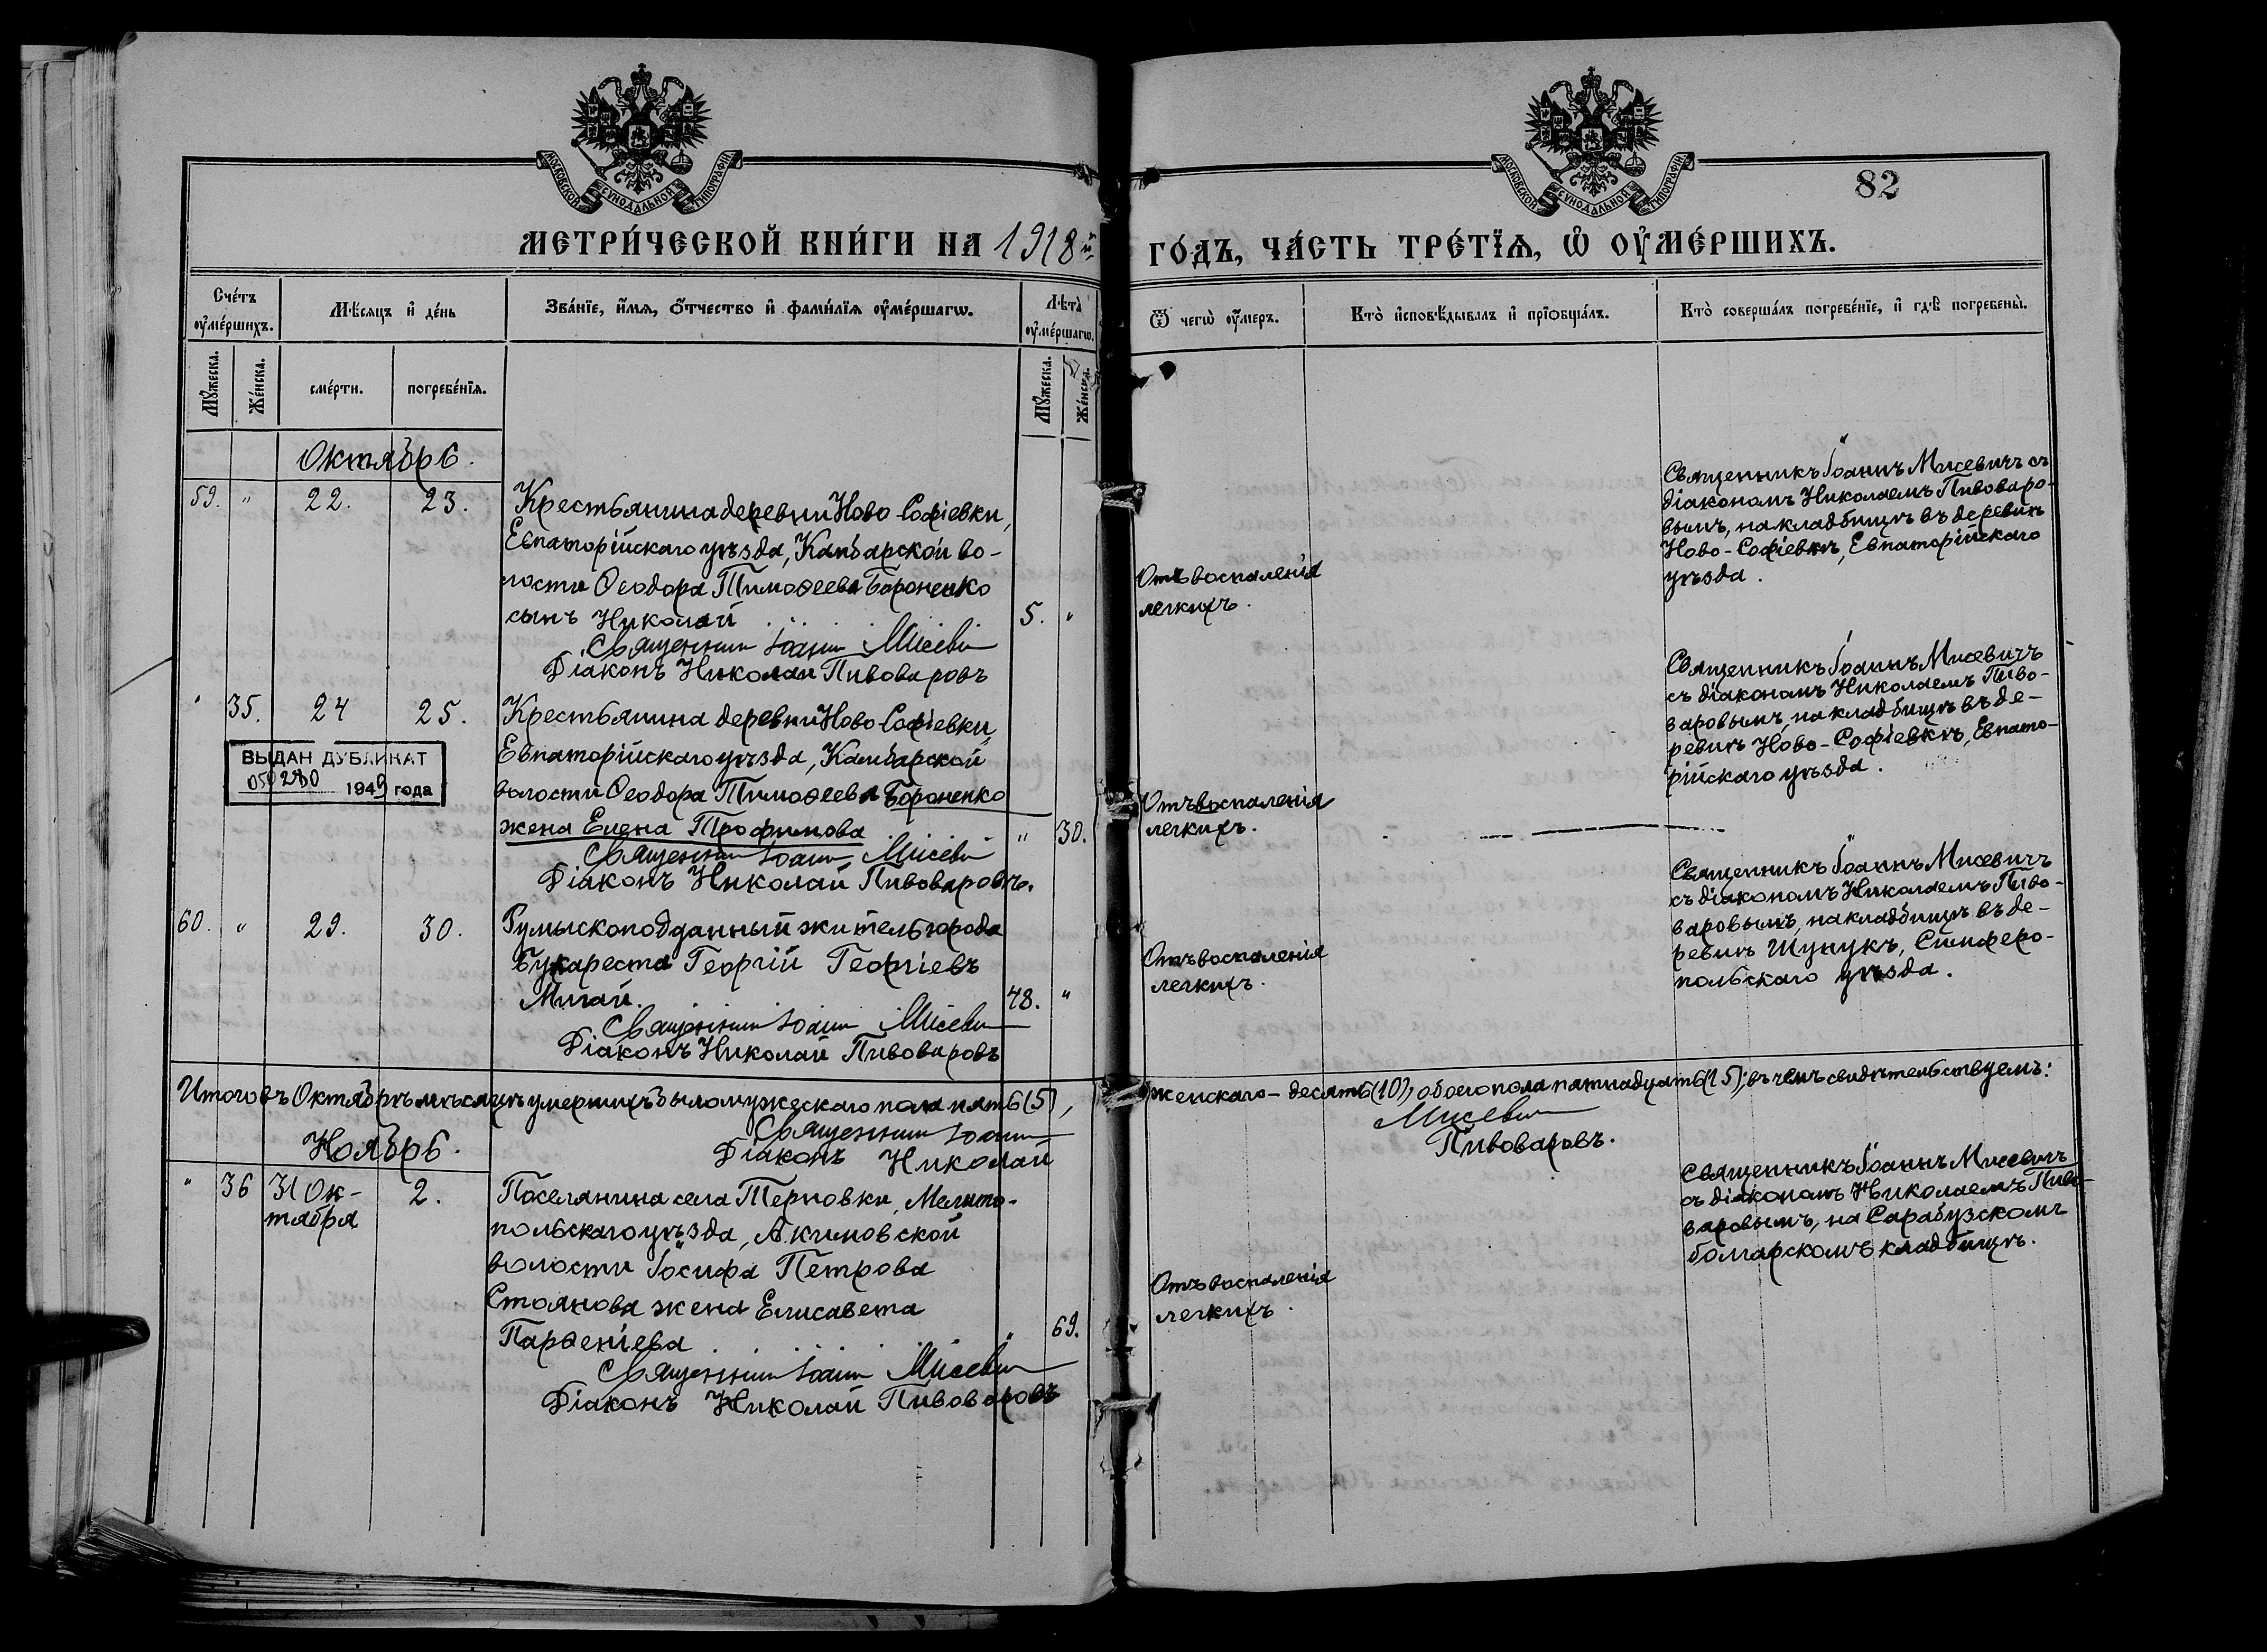 МОСКОВСКОЙ СѴНОДАЛЬНОЙ ТИПОГРАФІИ
МОСКОВСКОЙ СѴНОДАЛЬНОЙ ТИПОГРАФІИ
82
МЕТРИ́ЧЕСКОЙ КНИ́ГИ НА 1918й
ГО́ДЪ, ЧА́СТЬ ТРЕ́ТЇѦ, Ѡ҆ ОУ҆МЕ́РШИХЪ.
Сче́тъ оу҆ме́ршихъ.
Мѣ́сяцъ и҆ де́нь
Зва́нїе, и҆́мѧ, ѻ҆́тчество и҆ фами́лїѧ оу҆ме́ршагѡ.
Лѣ́та̀ оу҆ме́ршагѡ.
Ѿ чегѡ̀ оу҆́меръ.
Кто̀ и҆сповѣ́дывалъ и҆ прїѻбща́лъ.
Кто̀ соверша́лъ погребе́нїе, и҆ гдѣ̀ погребены̀.
Мꙋ́жеска.
Же́нска.
сме́рти.
погребе́нїѧ.
Мꙋ́жеска.
Же́нска.
Октябрь.
59. " 22. 23.
Крестьянина деревни Ново-Софіевки,
Евпаторійскаго уѣзда, Камбарской во-
лости Ѳеодора Тимоѳеева Бороненко
сынъ Николай
5. "
Священникъ Іоаннъ Мисевичъ
Діаконъ Николай Пивоваровъ
Отъ воспаленія
легкихъ.
Священникъ Іоаннъ Мисевичъ съ
діакономъ Николаемъ Пивоваро-
вымъ, на кладбищѣ въ деревнѣ
Ново-Софіевкѣ, Евпаторійскаго
уѣзда.
" 35. 24 25.
Крестьянина деревни Ново-Софіевки,
Евпаторійскаго уѣзда, Камбарской
волости Ѳеодора Тимоѳеева Бороненко
жена Елена Трофимова
" 30.
Священникъ Іоаннъ Мисевичъ
Діаконъ Николай Пивоваровъ.
ВЫДАН ДУБЛИКАТ
050280 1949 года
Отъ воспаленія
легкихъ.
Священникъ Іоаннъ Мисевичъ
съ діакономъ Николаемъ Пиво-
варовымъ, на кладбищѣ въ де-
ревнѣ Ново-Софіевкѣ, Евпато-
рійскаго уѣзда.
60. " 29. 30.
Румыскоподданный житель города
Бухареста Георгій Георгіевъ
48. "
Священникъ Іоаннъ Мисевичъ
Діаконъ Николай Пивоваровъ
Отъ воспаленія
легкихъ.
Священникъ Іоаннъ Мисевичъ
съ діакономъ Николаемъ Пиво-
варовымъ, на кладбищѣ въ де-
ревнѣ Шунукъ, Симферо-
польскаго уѣзда.
Итого въ Октябрѣ мѣсяцѣ умершихъ было мужескаго пола пять (5), женскаго - десять (10), обоего пола пятнадцать (15); въ чемъ свидѣтельствуемъ:
Священникъ Іоаннъ Мисевичъ
Діаконъ Николай Пивоваровъ.
Ноябрь.
" 36 31 Ок-
тября 2.
Поселянина села Терновки, Мелито-
польскаго уѣзда, Акимовской
волости Іосифа Петрова
Стоянова жена Елисавета
Парѳеніева
" 69.
Священникъ Іоаннъ Мисевичъ
Діаконъ Николай Пивоваровъ
Отъ воспаленія
легкихъ.
Священникъ Іоаннъ Мисевичъ
съ діакономъ Николаемъ Пиво-
варовымъ, на Сарабузскомъ
болгарскомъ кладбищѣ.